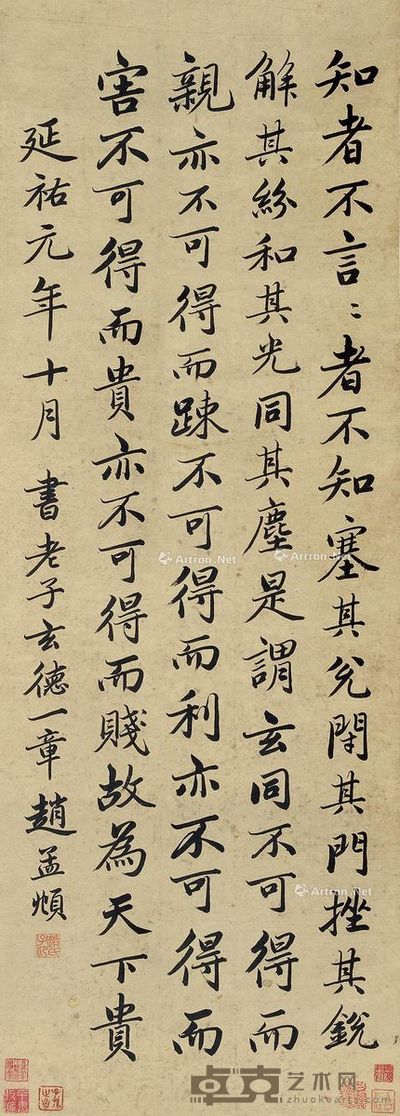 知者不言〻者不知塞其兑閉其門挫其銳
解其紛和其光同其塵是謂玄同不可得而
親亦不可得而踈不可得而利亦不可得而
害不可得而貴亦不可得而賤故為天下貴
延祐元年十月 書老子玄德一章趙孟頫
Artron.Net
Artron.Net
Artron.Net
卓克艺术网
zhuokearts.com